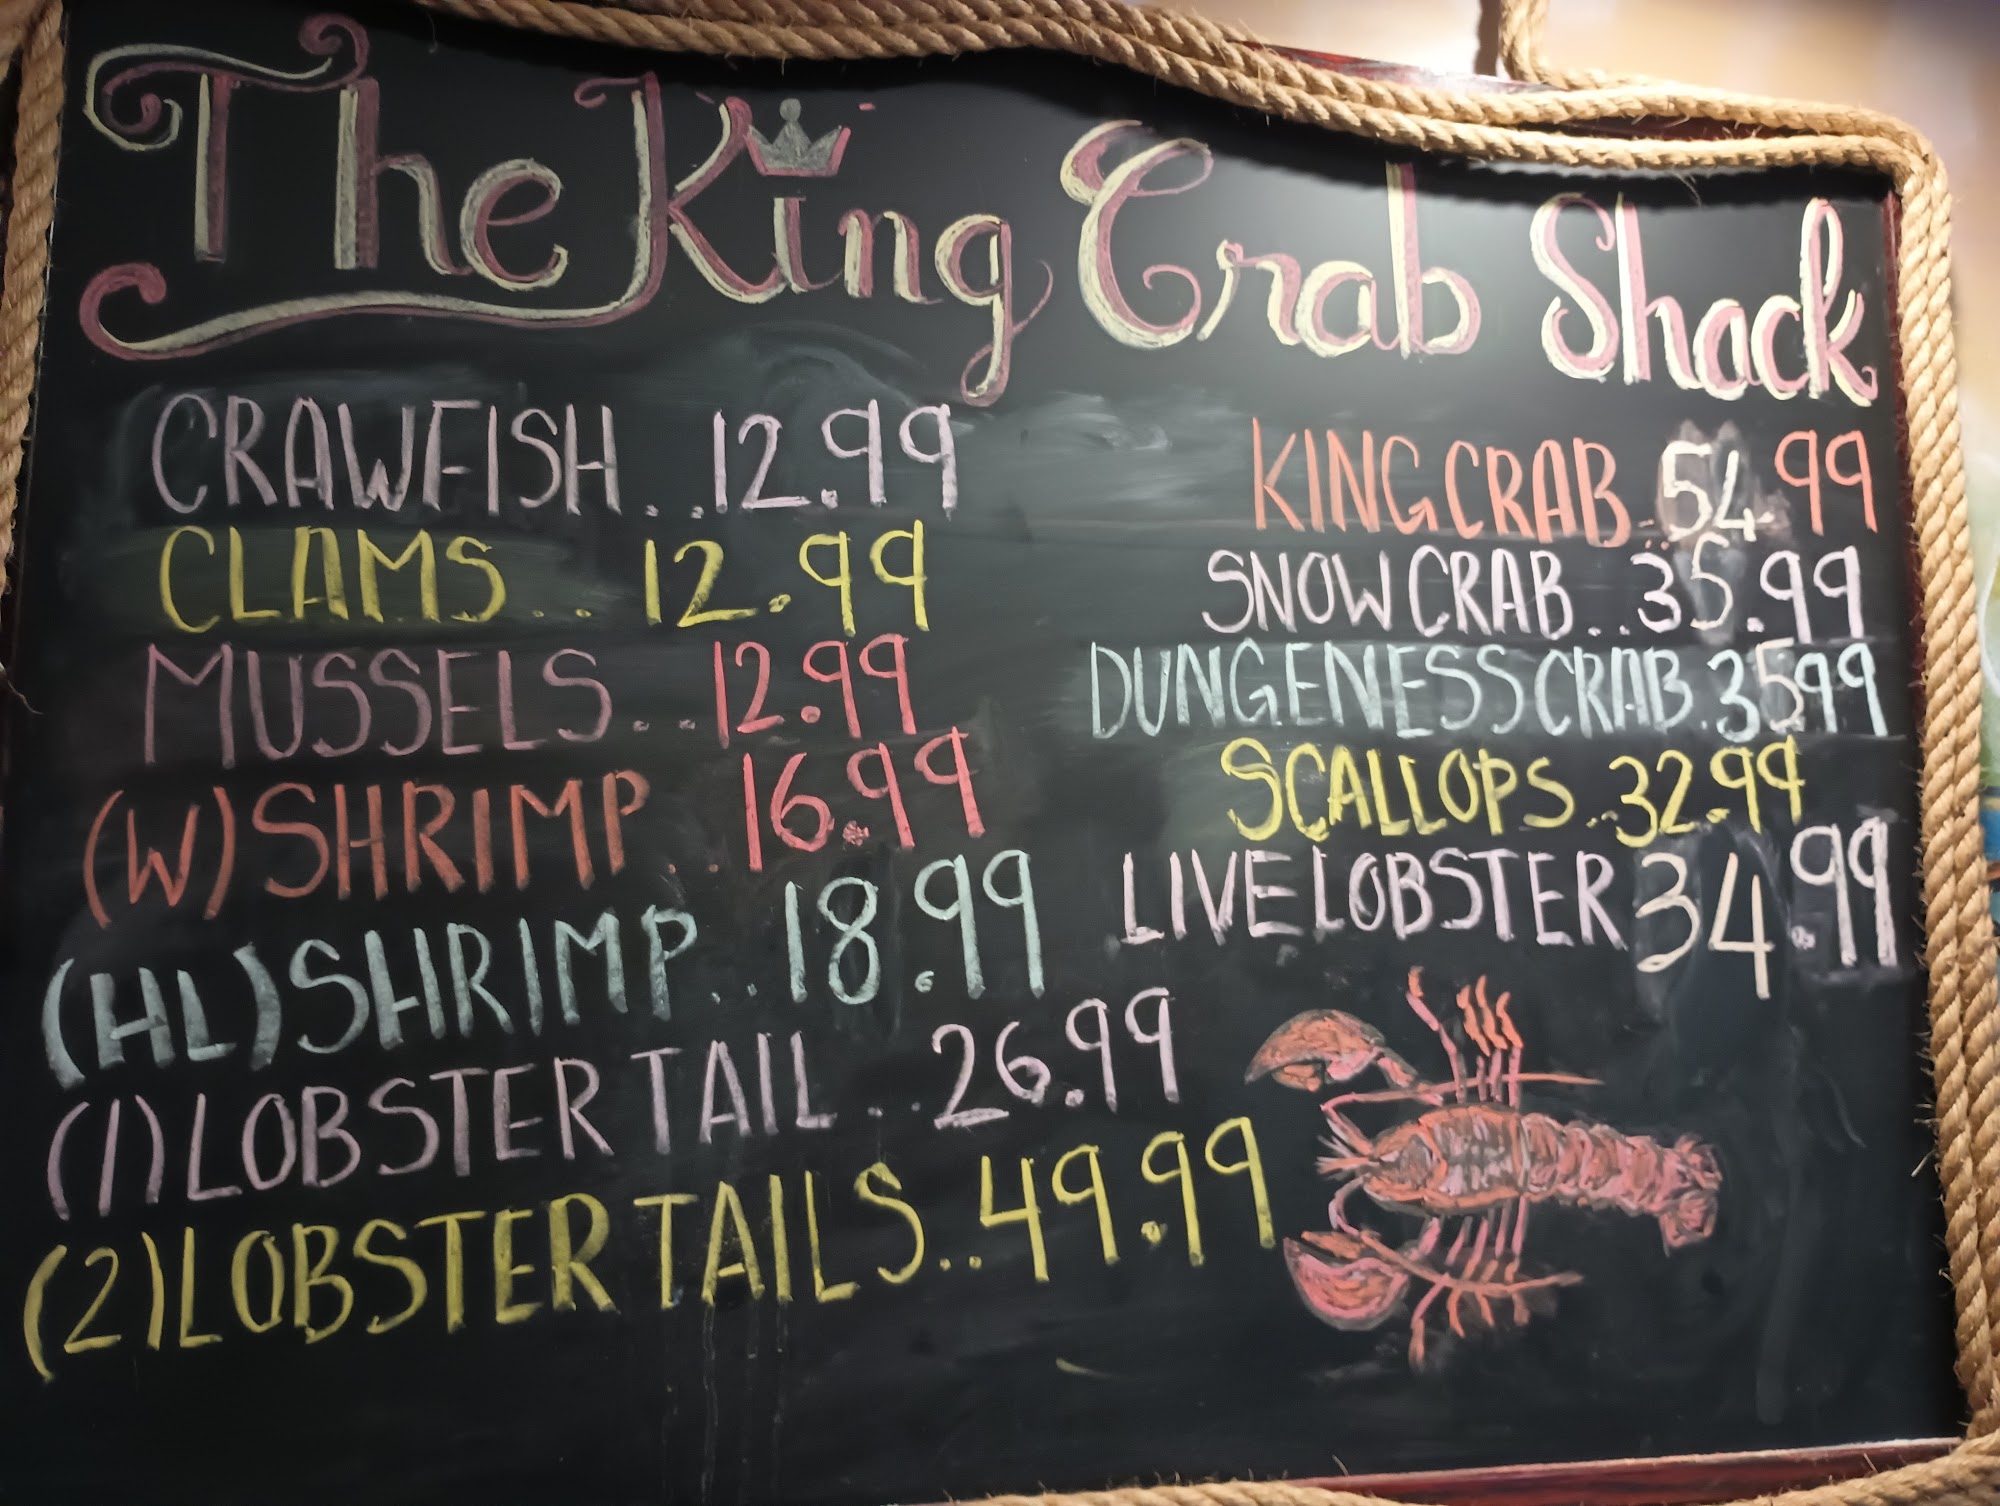 The King Crab Shack
CRAWFISH...12.99
CLAMS... 12.99
MUSSELS...12.99
(W)SHRIMP..16.99
(HL)SHRIMP..18.99
(1)LOBSTER TAIL..26.99
(2)LOBSTER TAILS..49.99
KING CRAB..54.99
SNOW CRAB..35.99
DUNGENESS CRAB.3599
SCALLOPS..32.99
LIVE LOBSTER 34.99